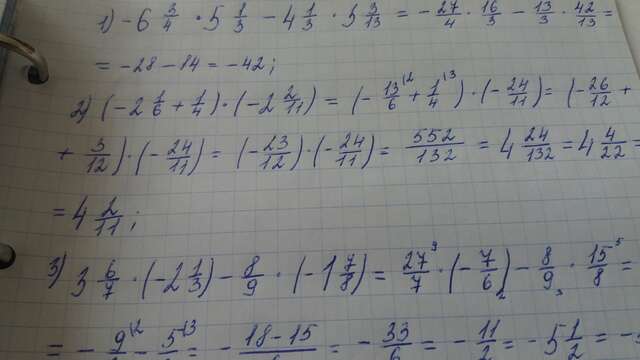 1) -6 3/4 · 5 1/3 - 4 1/3 · 3 3/13 = -27/4 · 16/3 - 13/3 · 42/13 =
= -28 - 14 = -42;
2) (-2 1/6 + 1/4) · (-2 2/11) = (-13/6 + 1/4) · (-24/11) = (-26/12 +
+ 3/12) · (-24/11) = (-23/12) · (-24/11) = 552/132 = 4 24/132 = 4 4/22 =
= 4 2/11;
3) 3 6/7 · (-2 1/3) - 8/9 · (-1 7/8) = 27/7 · (-7/6) - 8/9 · 15/8 =
= - 9/ - 5/ = - 18-15/ = -33/6 = -11/2 = -5 1/2 = -